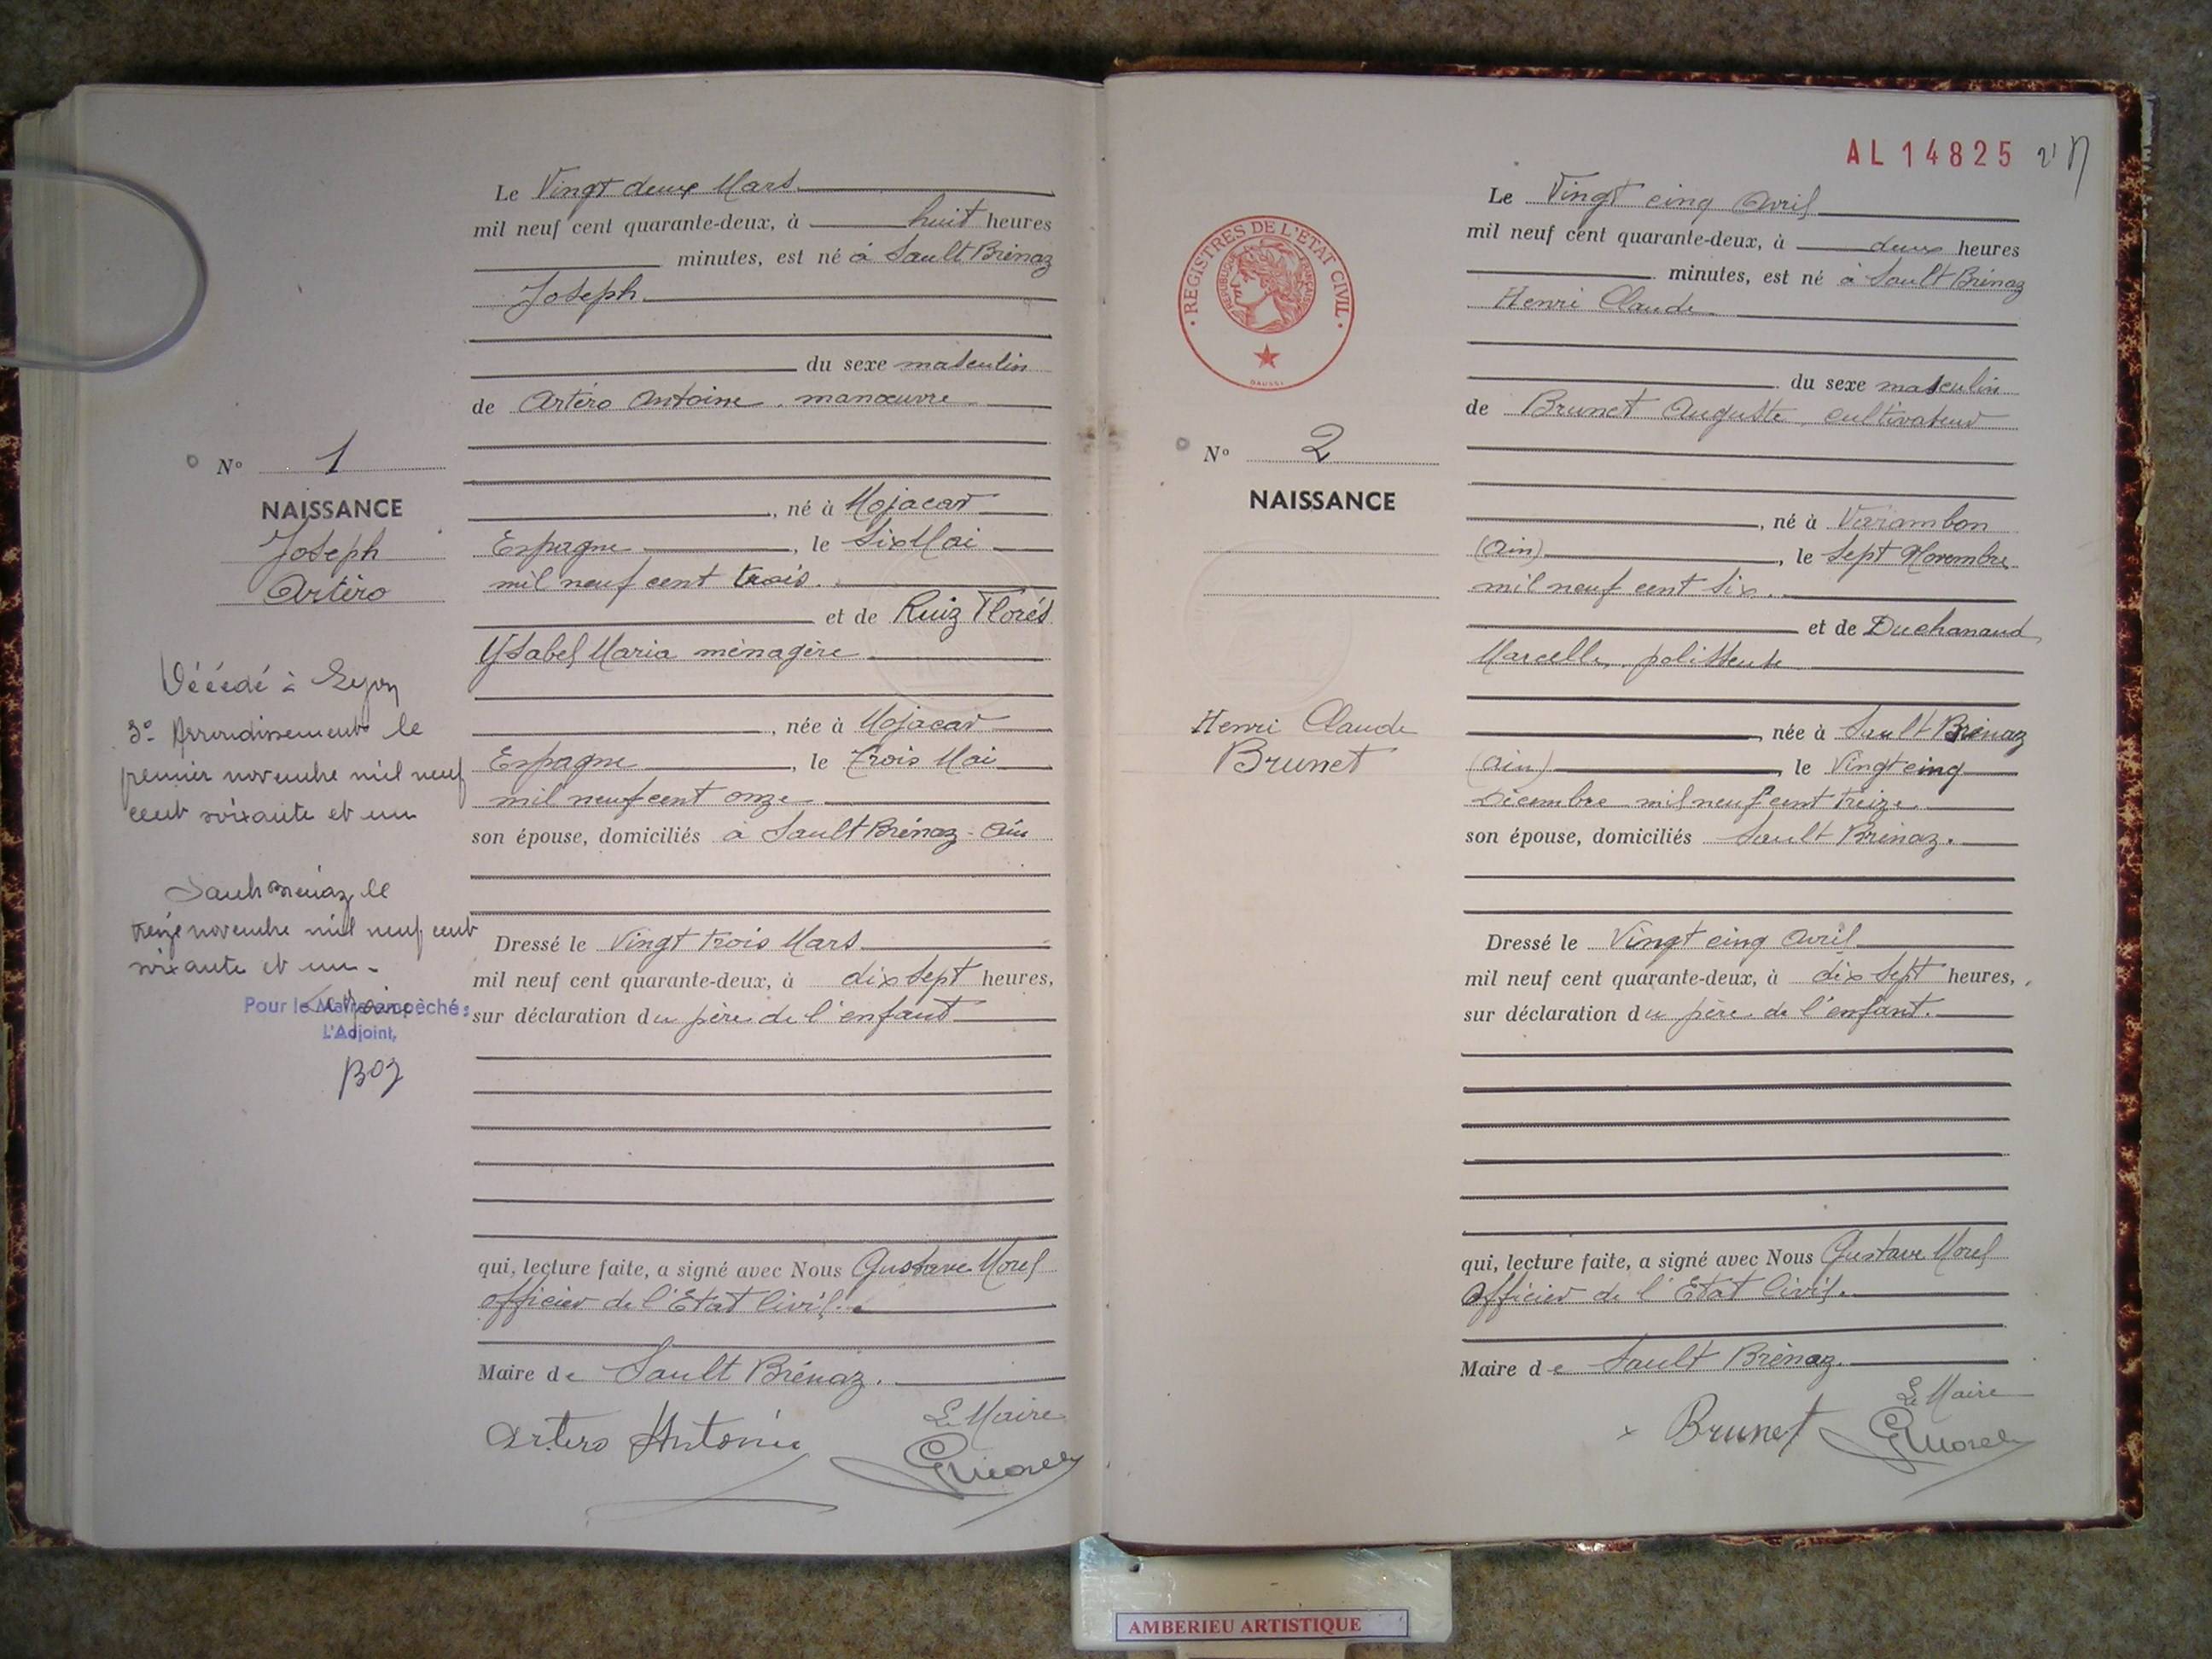 Le Vingt deux Mars
mil neuf cent quarante-deux, à huit heures
minutes, est né à Sault Brénaz
Joseph
du sexe masculin
de Artéro Antoine, manœuvre
, né à Mojacar
Espagne, le Six Mai
mil neuf cent trois.
et de Ruiz Florés
Ysabel Maria ménagère
, née à Mojacar
Espagne, le Trois Mai
mil neuf cent onze
son épouse, domiciliés à Sault Brénaz - Ain
Dressé le Vingt trois Mars
mil neuf cent quarante-deux, à dix sept heures,
sur déclaration du père de l'enfant
qui, lecture faite, a signé avec Nous Gustave Morel
officier de l'Etat Civil.
Maire de Sault Brénaz.
Le Maire
Artero Antonio
GMorel
N° 1
NAISSANCE
Joseph
Artéro
Décédé à Lyon
3e Arrondissement le
premier novembre mil neuf
cent soixante et un
Sault Brénaz le
treize novembre mil neuf cent
soixante et un -
Le Maire
Pour le Maire empèché:
L'Adjoint,
Boz
AL 14825
REGISTRES DE L'ÉTAT CIVIL
RÉPUBLIQUE FRANÇAISE
Le Vingt cinq Avril
mil neuf cent quarante-deux, à deux heures
minutes, est né à Sault Brénaz
Henri Claude
du sexe masculin
de Brunet Auguste, cultivateur
, né à Varambon
(Ain), le Sept Novembre
mil neuf cent six.
et de Duchanaud
Marcelle, polisseuse
, née à Sault Brénaz
(Ain), le Vingt cinq
Décembre mil neuf cent treize.
son épouse, domiciliés Sault Brénaz.
Dressé le Vingt cinq Avril
mil neuf cent quarante-deux, à dix sept heures,
sur déclaration du père de l'enfant.
qui, lecture faite, a signé avec Nous Gustave Morel
Officier de l'Etat Civil.
Maire de Sault Brénaz.
Le Maire
x Brunet
GMorel
N° 2
NAISSANCE
Henri Claude
Brunet
AMBERIEU ARTISTIQUE